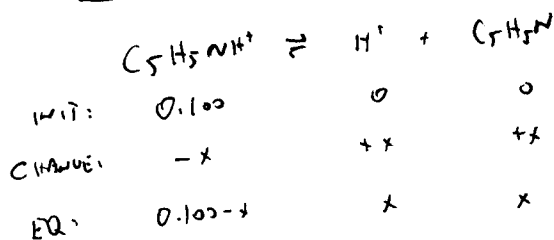 C₅H₅NH⁺ ⇌ H⁺ + C₅H₅N
INIT: 0.100 0 0
CHANGE: -x +x +x
EQ: 0.100-x x x